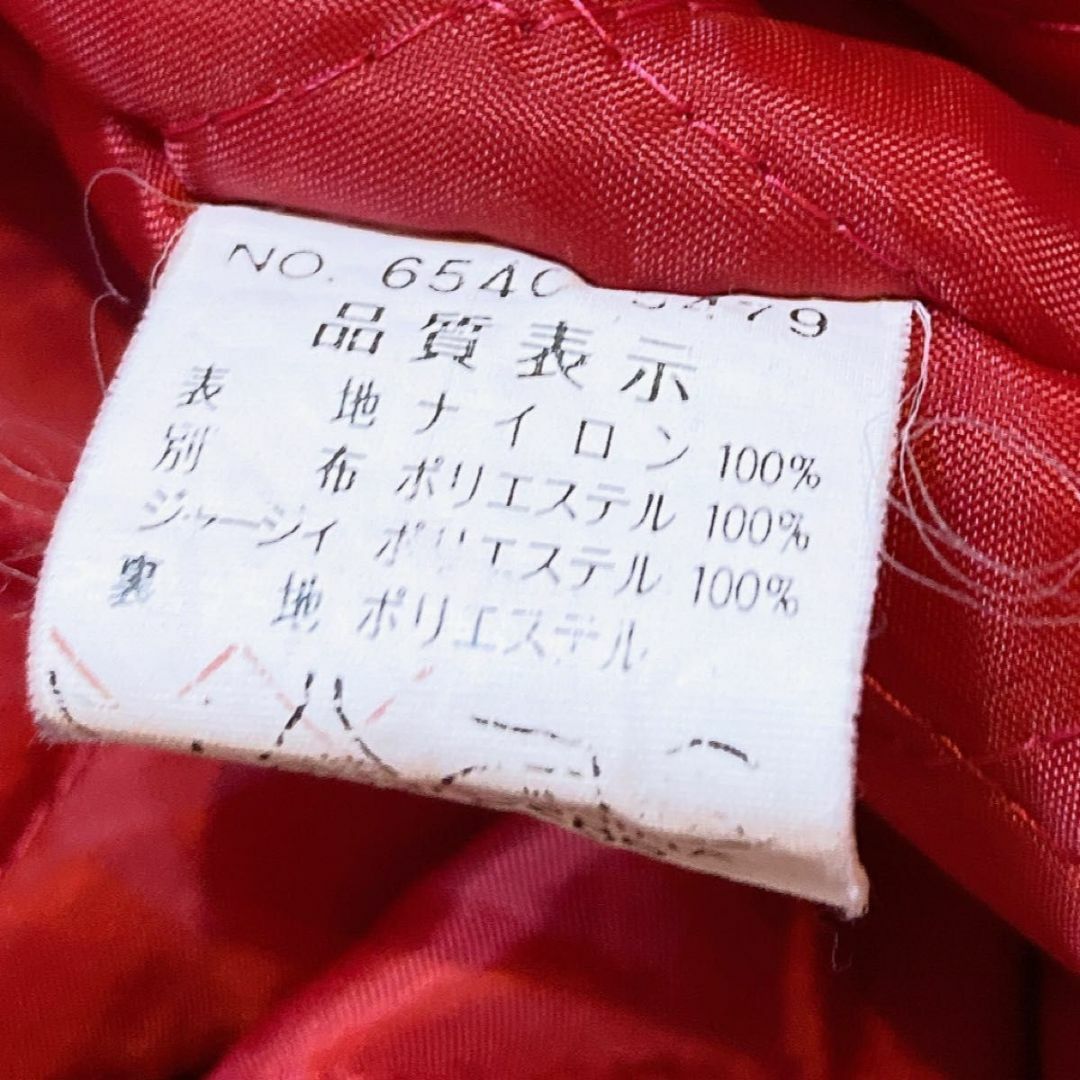 NO. 6540
品質表示
表地 ナイロン 100%
別布 ポリエステル 100%
ジャージィ ポリエステル 100%
裏地 ポリエステル